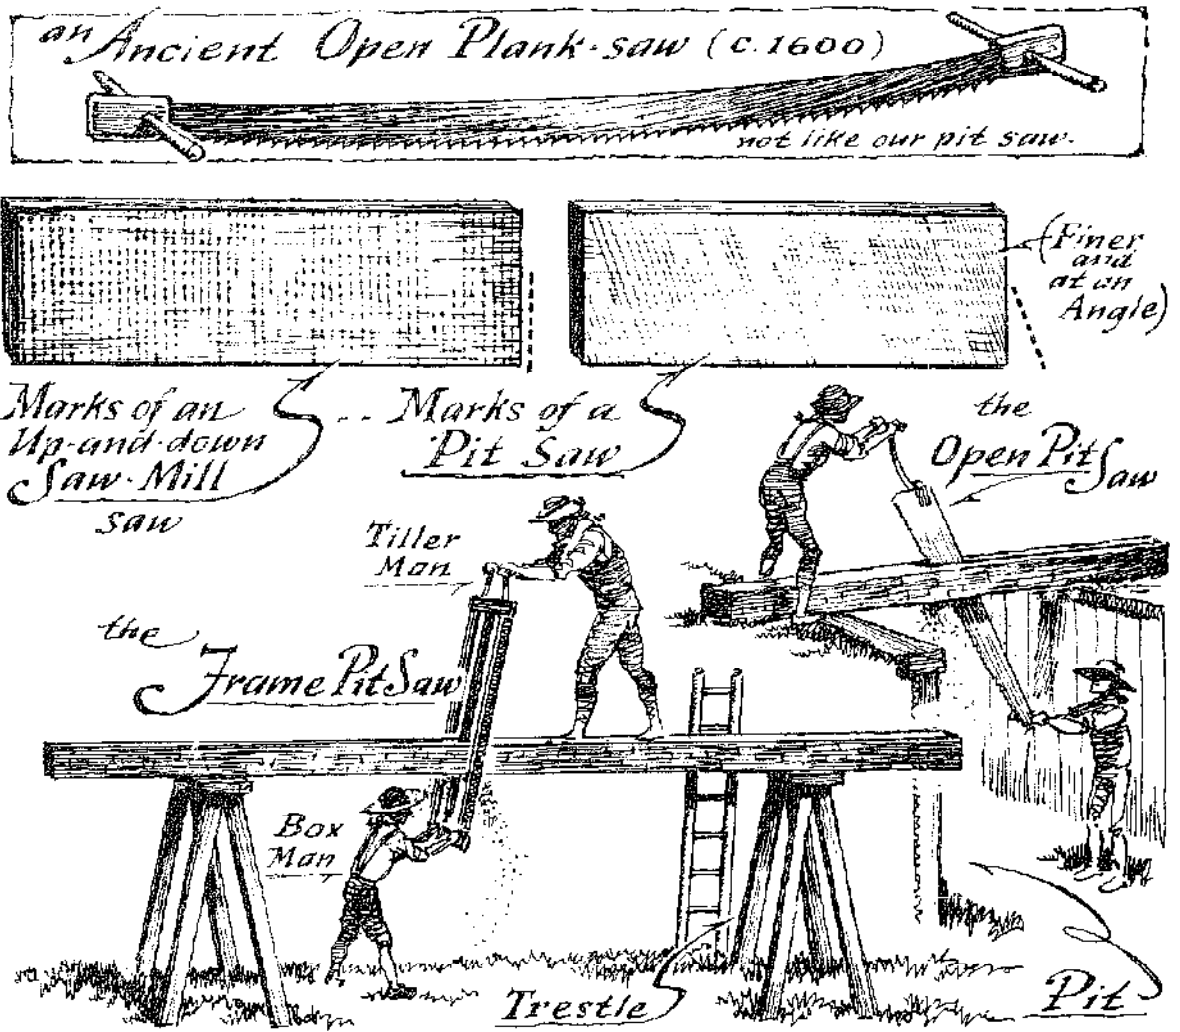 an Ancient Open Plank-saw (c.1600)
not like our pit saw.
(Finer
and
at an
Angle)
Marks of an
Up-and-down
Saw-Mill
saw
-- Marks of a
Pit Saw
the
Open Pit Saw
Tiller
Man
the
Frame Pit Saw
Box
Man
Trestle
Pit